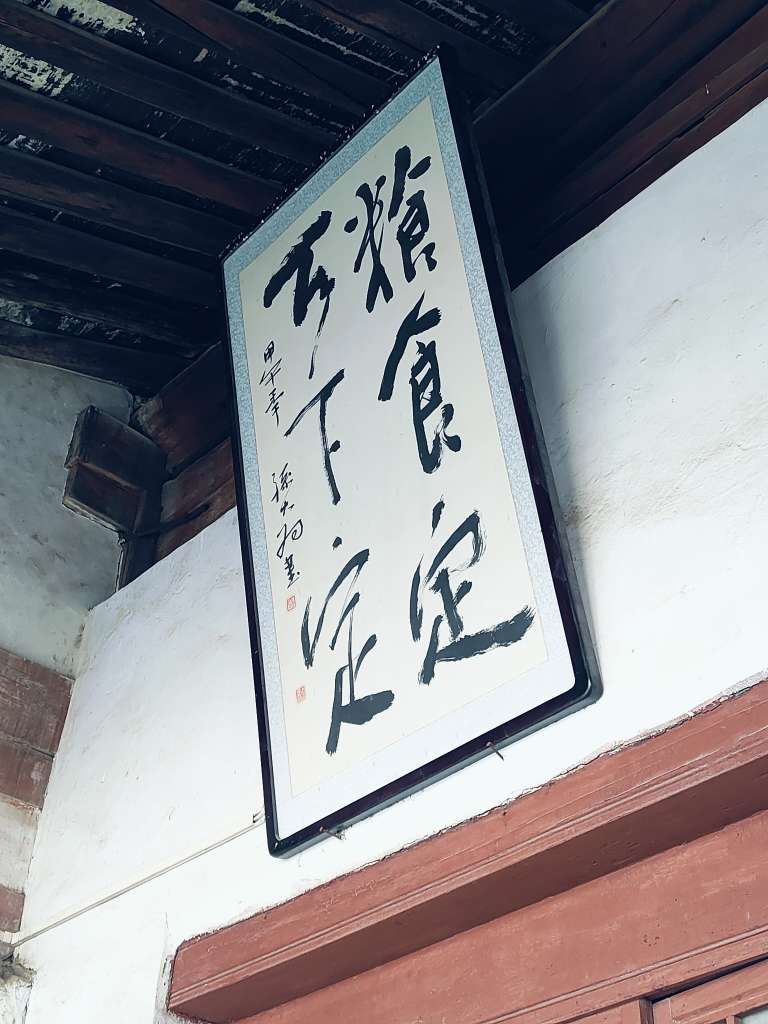 粮食定
天下定
甲午年 孫大
書